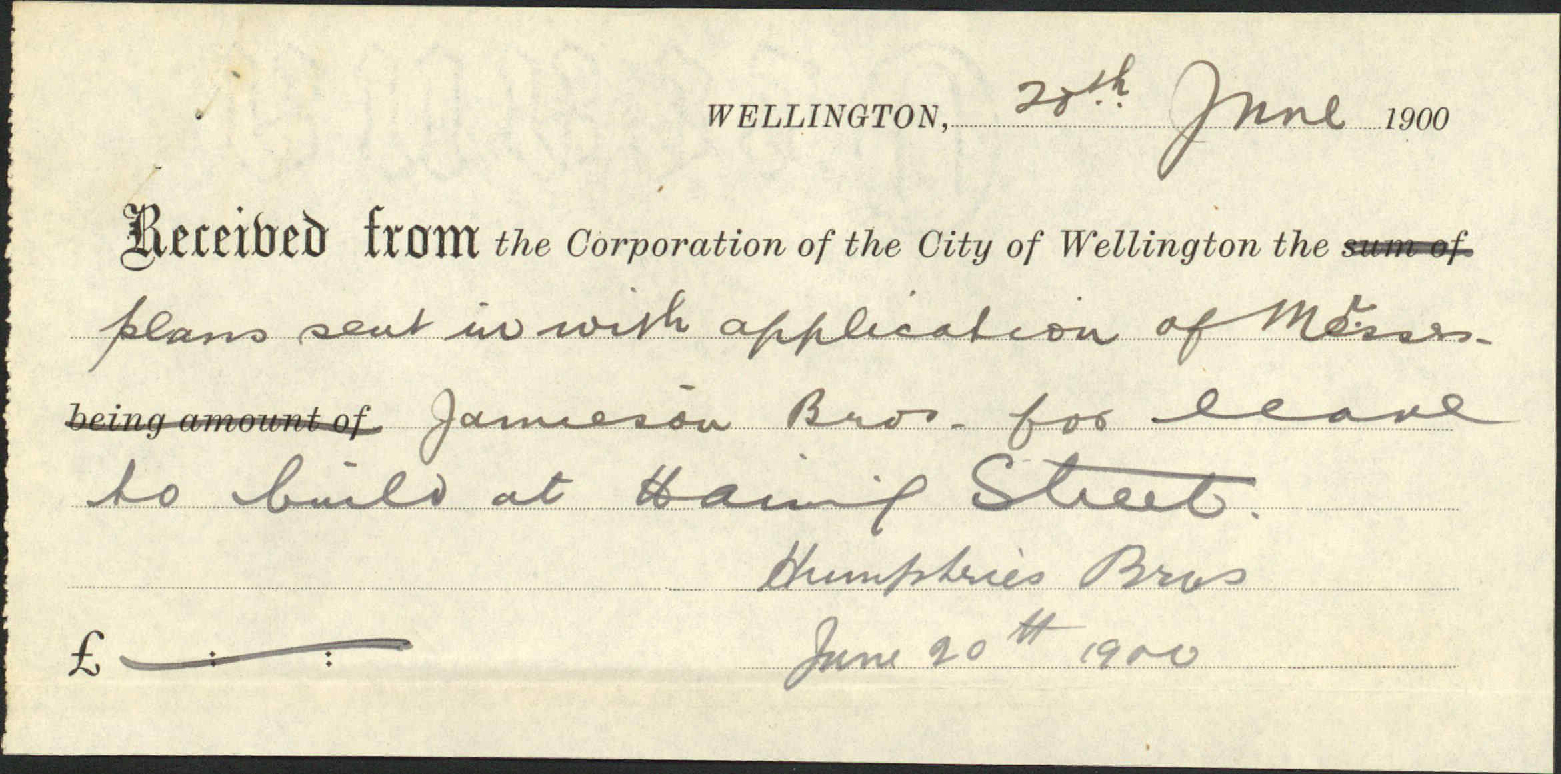 WELLINGTON, 20th June 1900
Received from the Corporation of the City of Wellington the sum of
plans sent in with application of Messrs.
being amount of Jamieson Bros. for leave
to build at Haining Street.
Humphries Bros
£ : : June 20th 1900